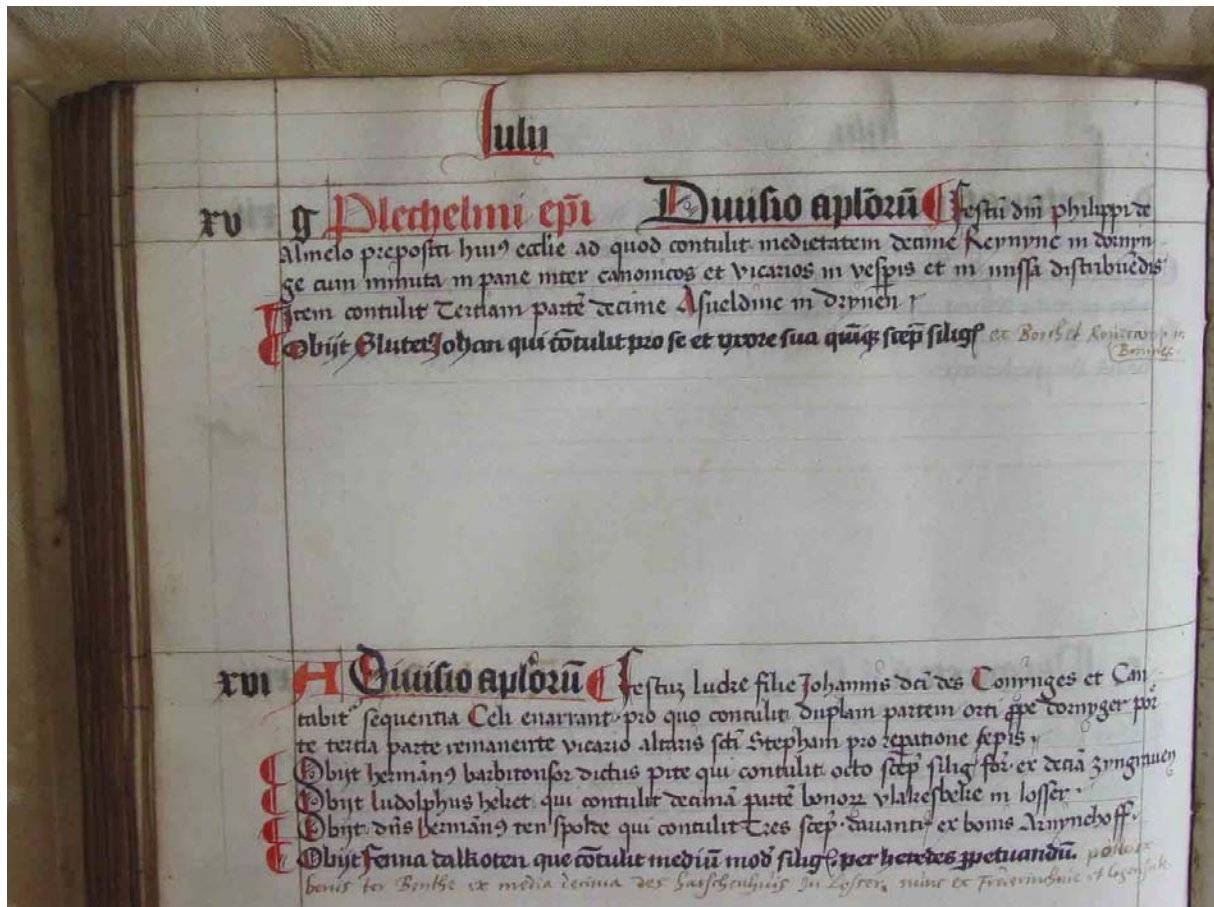 Iulij
xv g Plechelmi ep̄i Diuisio aplōrū Festū dn̄i philippi de
Almelo prepositi huiꝰ ecclie ad quod contulit medietatem decime Reynync in dornyn
ge cum minuta in pane inter canonicos et vicarios in vesp̄is et in missa distribuēdis
Item contulit Terciam partē decime Asueldinc in Drynen
Obijt Sluter Johan qui cōtulit pro se et vxore sua quīqꝫ scep̄ siliḡ ex
xvi A Diuisio aplōrū Festuꝫ ludre filie Johannis dc̄i des Conynges et Can
tabit᷑ sequentia Celi enarrant pro quo contulit duplam partem orti ꝓpe dornyger por
te tercia parte remanente vicario altaris sc̄ti Stephani pro repatione sepis
Obijt hermānꝰ barbitonsor dictus pite qui contulit octo scep̄ siliḡ ex decīa zyngrauen
Obijt ludolphus heket qui contulit decimā partē bonoꝝ vlakesbeke in losser
Obijt dn̄s hermānꝰ ten spolde qui contulit Tres scep̄ ex bonis Arnynchoff
Obijt Fenna dalkoten que cōtulit mediū mod̄ siliḡ per heredes ꝑpetuandū
ter Benthe ex media decima des in Losser nunc ex